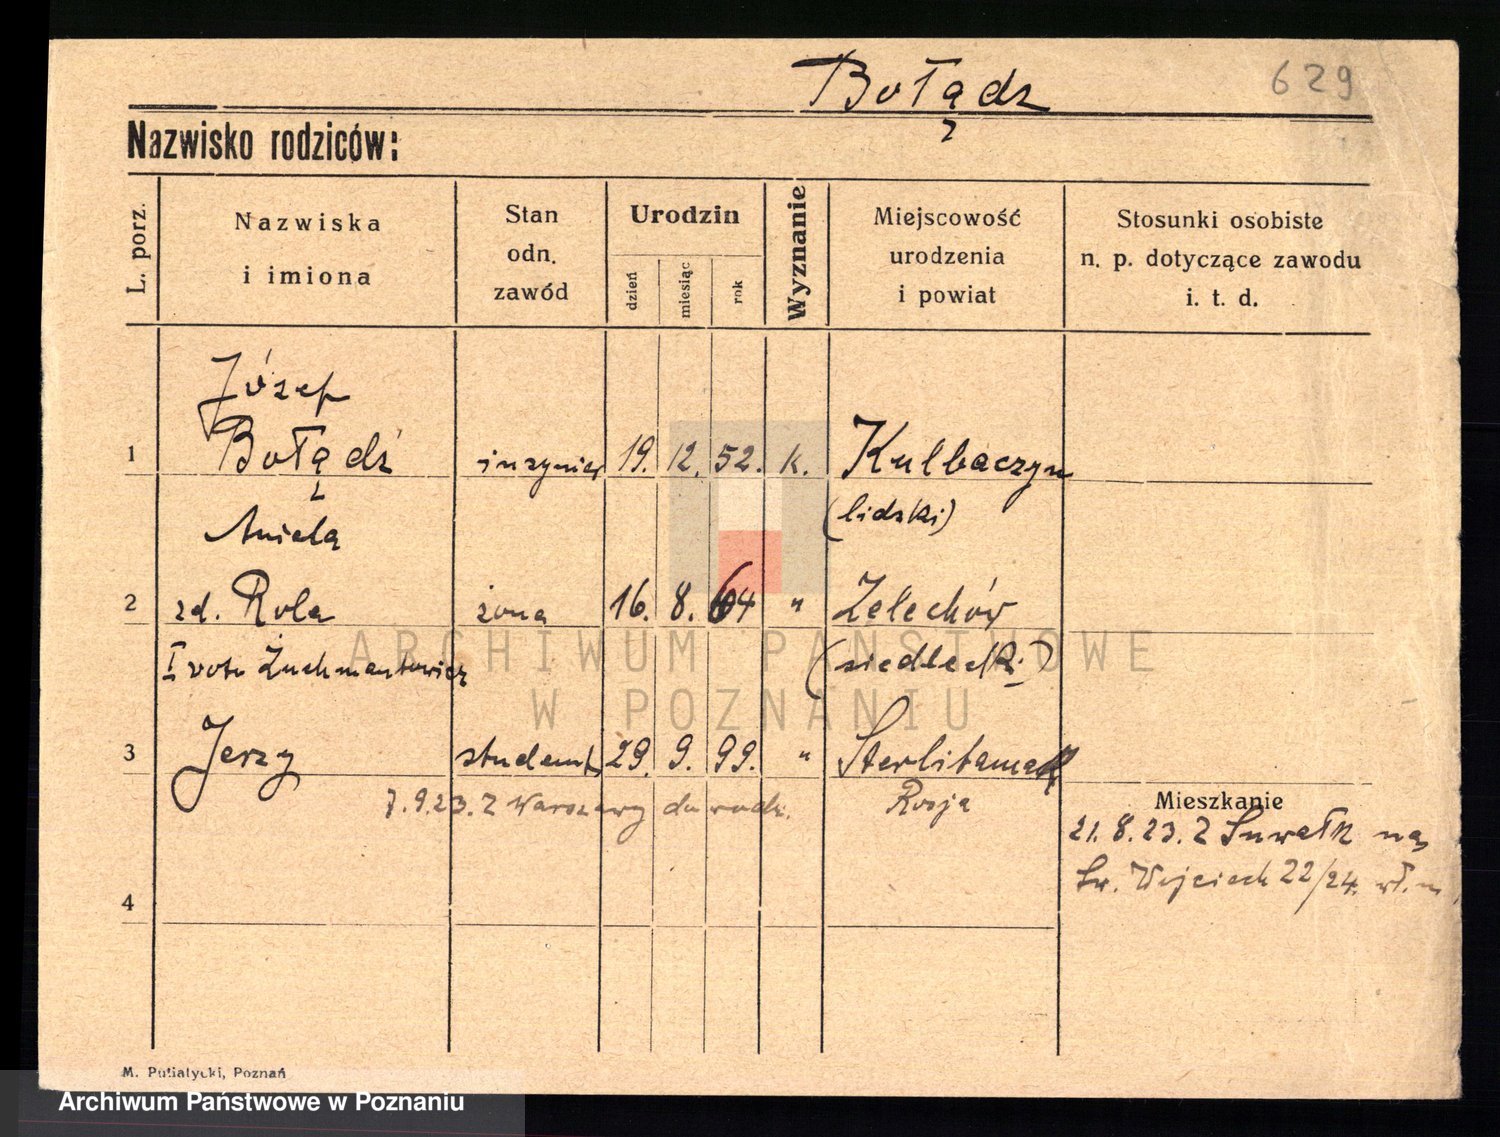 Bołądz
629
Nazwisko rodziców:
L. porz.
Nazwiska
i imiona
Stan
odn.
zawód
Urodzin
dzień
miesiąc
rok
Wyznanie
Miejscowość
urodzenia
i powiat
Stosunki osobiste
n. p. dotyczące zawodu
i. t. d.
Józef
1 Bołądź inżynier 19. 12. 52. k. Kulbaczyn
(lidzki)
Aniela
2 zd. Rola żona 16. 8. 64 " Żelechów
I voto Żuchmantowicz (siedlecki)
3 Jerzy student 29. 9. 99. " Sterlitamak
7.9.23. Z Warszawy do rodz. Rosja
Mieszkanie
21. 8. 23. Z Suwałk na
Św. Wojciech 22/24. wł. m.
4
M. Putiatycki, Poznań
ARCHIWUM PAŃSTWOWE
W POZNANIU
Archiwum Państwowe w Poznaniu